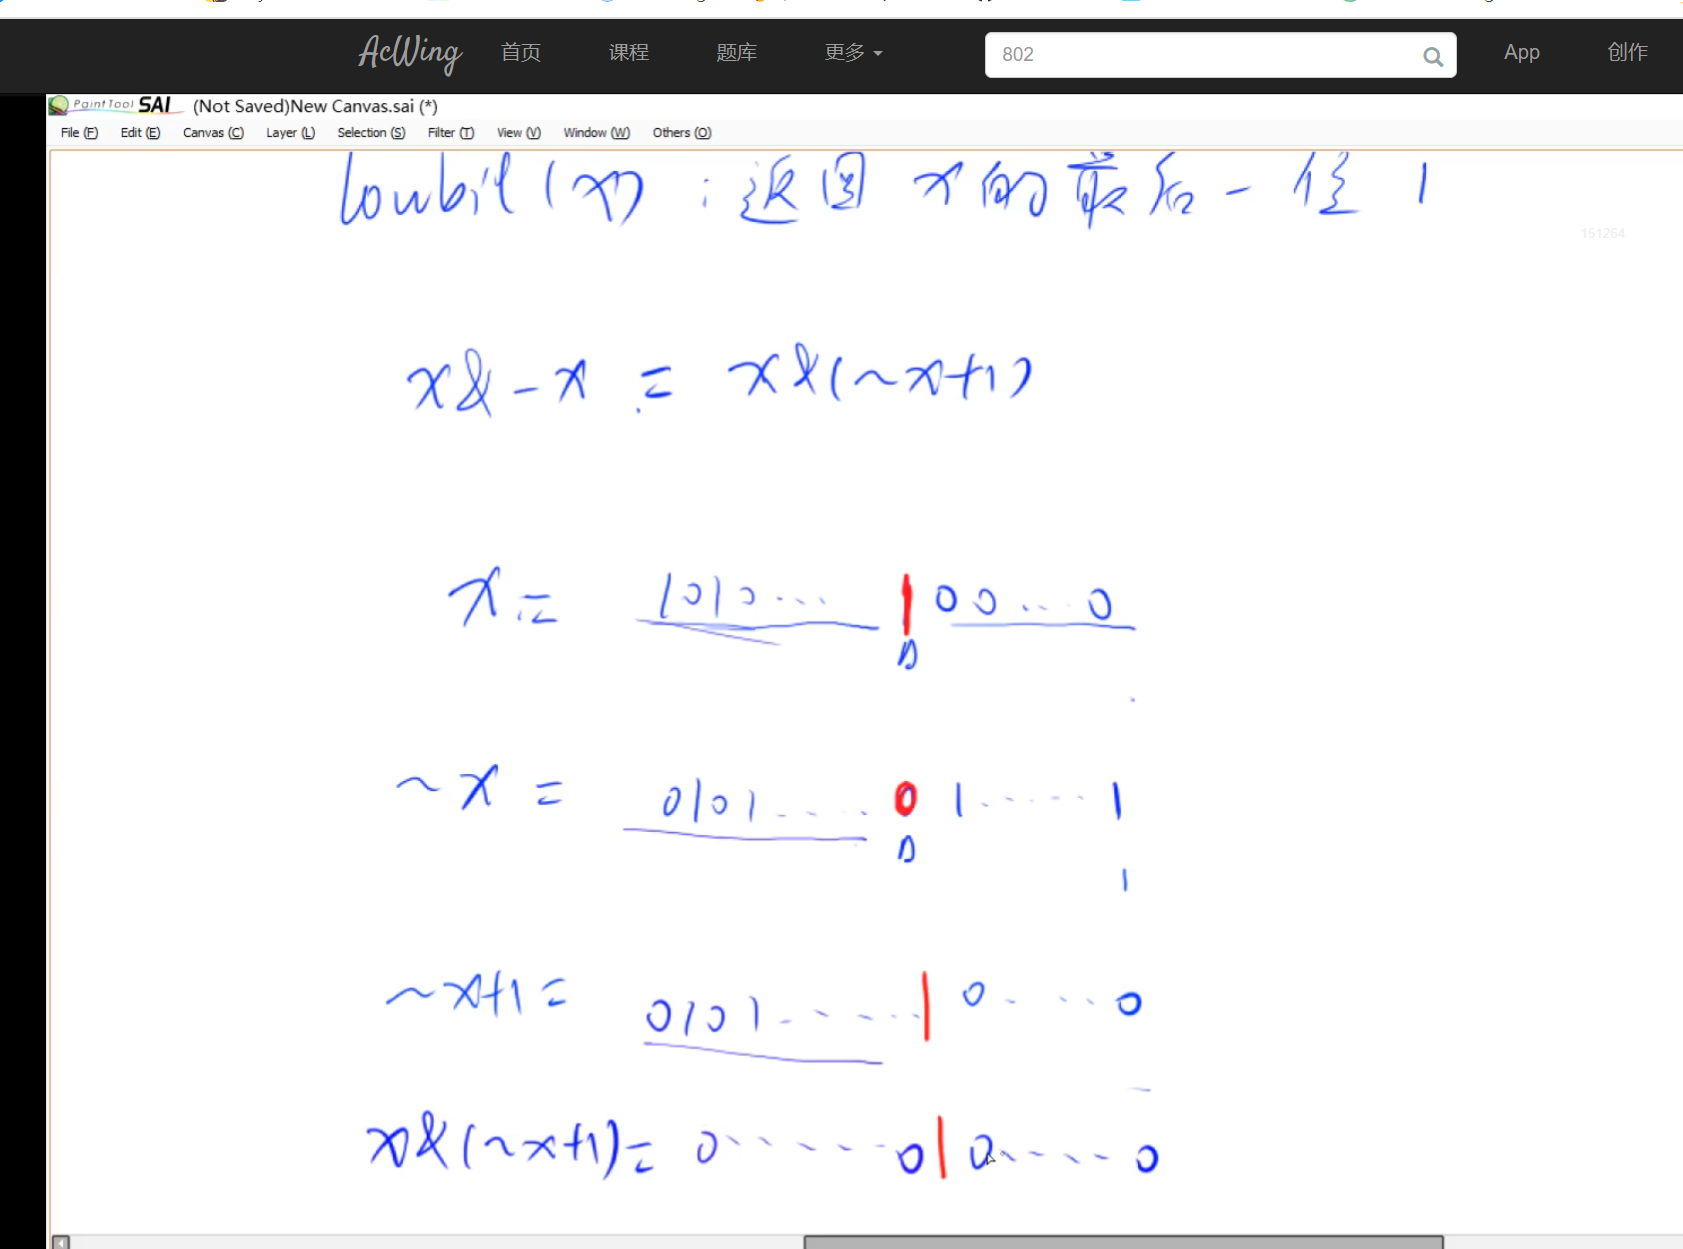 AcWing 首页 课程 题库 更多 802 App 创作
PaintTool SAI (Not Saved)New Canvas.sai (*)
File (F) Edit (E) Canvas (C) Layer (L) Selection (S) Filter (T) View (V) Window (W) Others (O)
lowbit(x) : 返回 x 的最后一位 1
151264
x&-x = x&(~x+1)
x= 1010... 1 00...0
~x = 0101..... 0 1......1
1
~x+1= 0101...... 1 0....0
x&(~x+1)= 0......0 1 0.....0